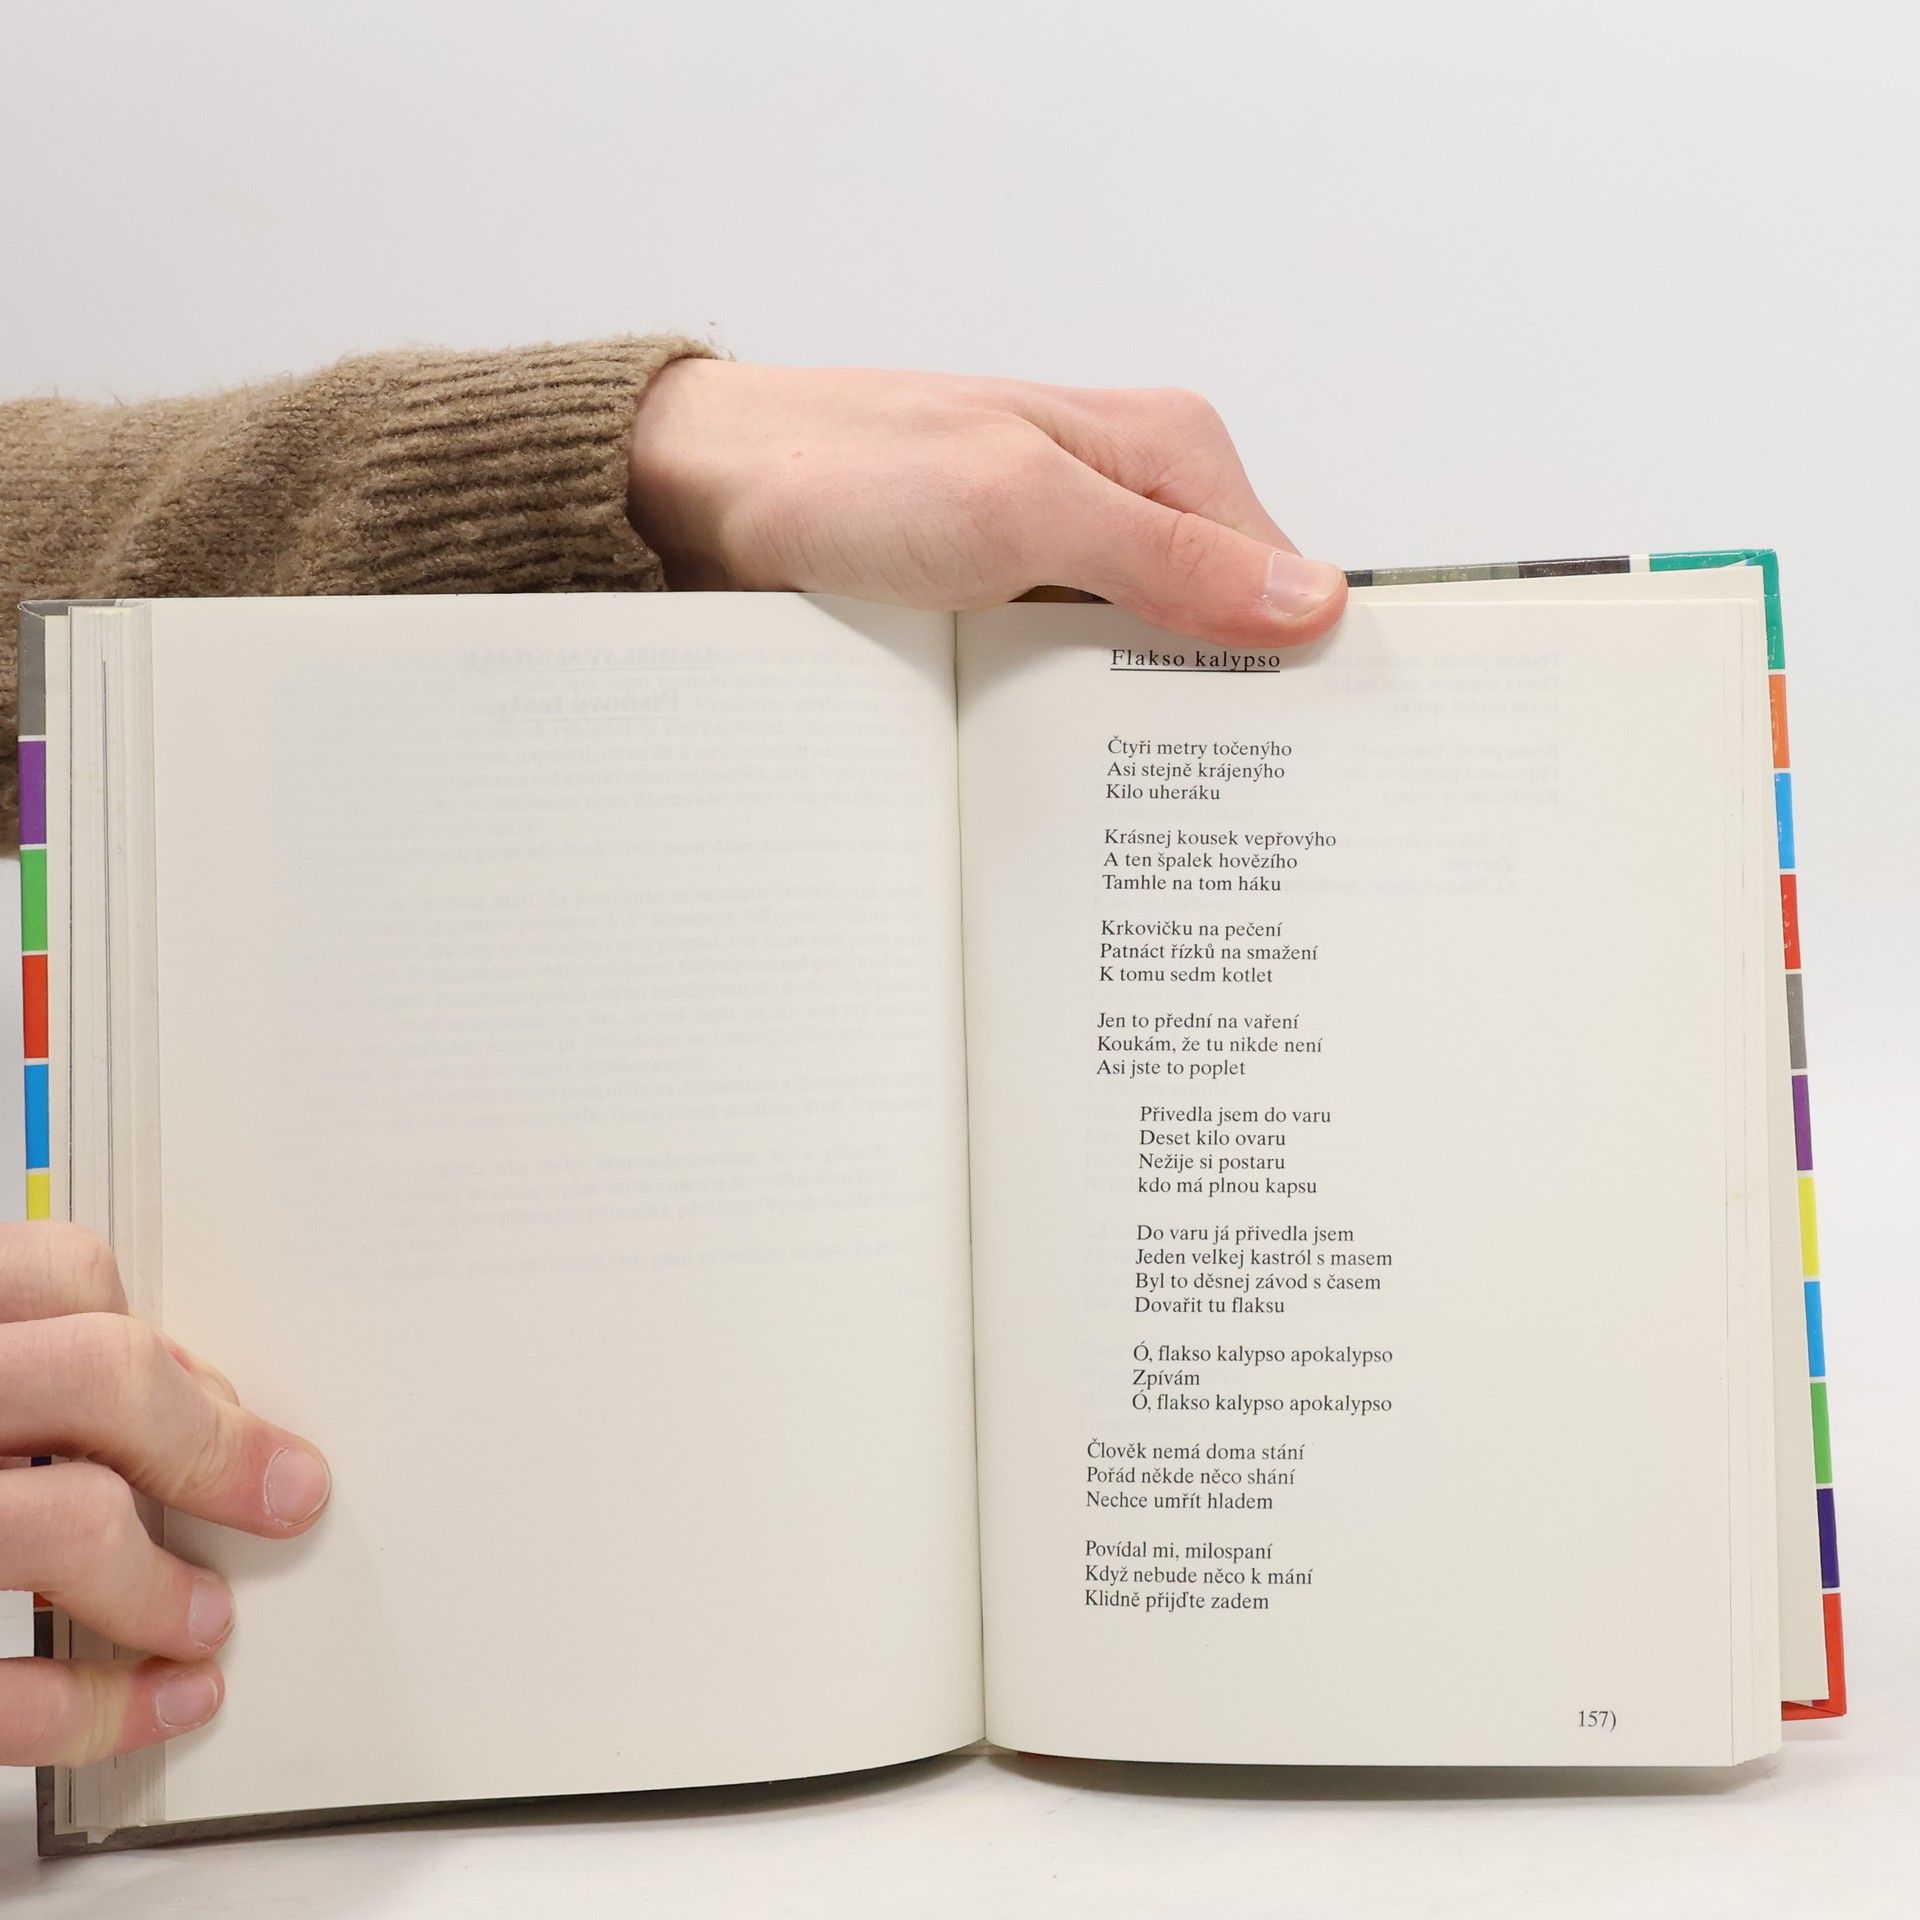 Flakso kalypso
Čtyři metry točenýho
Asi stejně krájenýho
Kilo uheráku
Krásnej kousek vepřovýho
A ten špalek hovězího
Tamhle na tom háku
Krkovičku na pečení
Patnáct řízků na smažení
K tomu sedm kotlet
Jen to přední na vaření
Koukám, že tu nikde není
Asi jste to poplet
Přivedla jsem do varu
Deset kilo ovaru
Nežije si postaru
kdo má plnou kapsu
Do varu já přivedla jsem
Jeden velkej kastról s masem
Byl to děsnej závod s časem
Dovařit tu flaksu
Ó, flakso kalypso apokalypso
Zpívám
Ó, flakso kalypso apokalypso
Člověk nemá doma stání
Pořád někde něco shání
Nechce umřít hladem
Povídal mi, milospaní
Když nebude něco k mání
Klidně přijďte zadem
157)